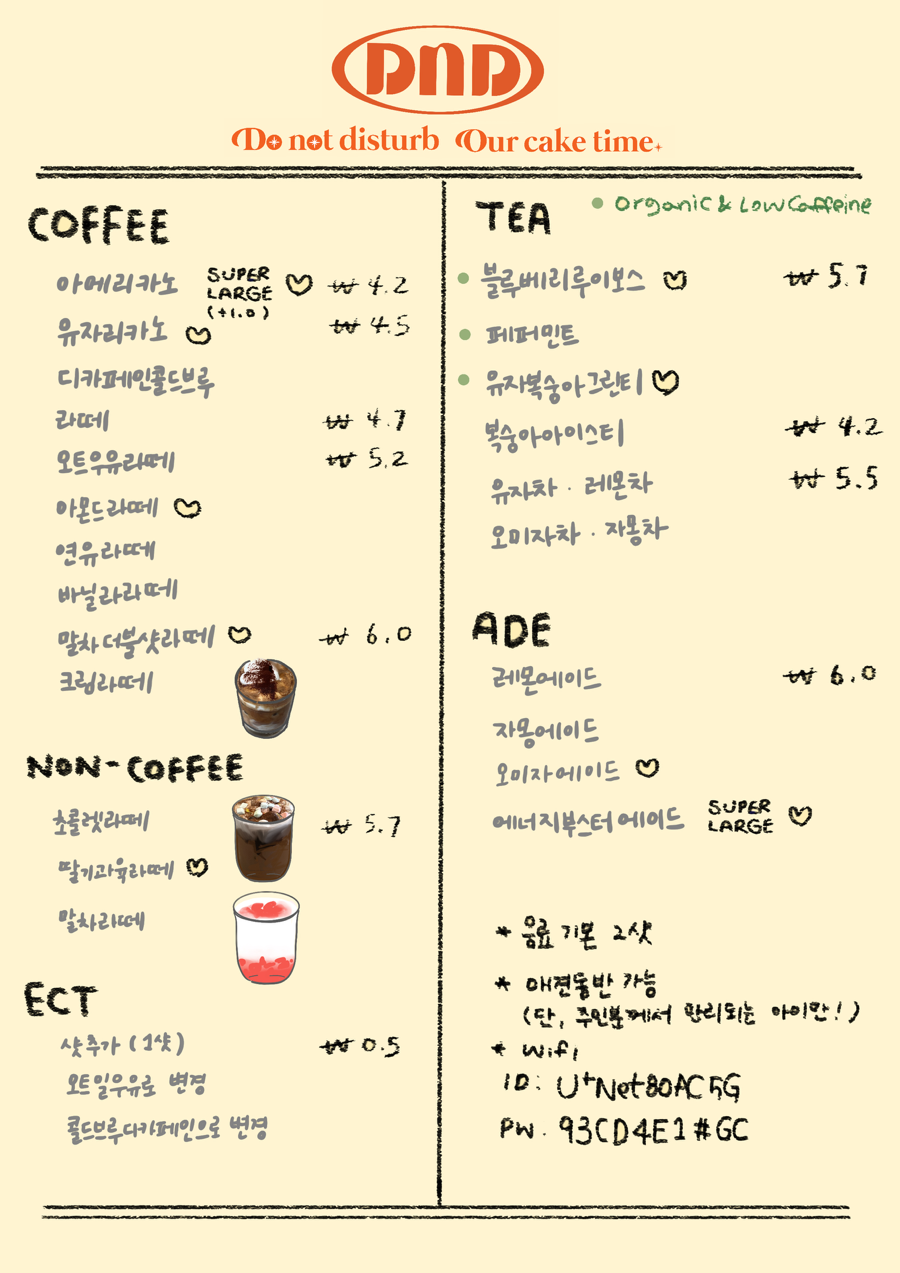 DND
Do not disturb Our cake time.
COFFEE
아메리카노 SUPER LARGE (+1.0) ₩ 4.2
유자리카노 ₩ 4.5
디카페인콜드브루
라떼 ₩ 4.7
오트우유라떼 ₩ 5.2
아몬드라떼
연유라떼
바닐라라떼
말차더블샷라떼 ₩ 6.0
크림라떼
NON-COFFEE
초콜렛라떼 ₩ 5.7
딸기과육라떼
말차라떼
ECT
샷추가 (1샷) ₩ 0.5
오트일우유로 변경
콜드브루디카페인으로 변경
TEA
Organic & Low Caffeine
블루베리루이보스 ₩ 5.7
페퍼민트
유자복숭아그린티
복숭아아이스티 ₩ 4.2
유자차 · 레몬차 ₩ 5.5
오미자차 · 자몽차
ADE
레몬에이드 ₩ 6.0
자몽에이드
오미자에이드
에너지부스터에이드 SUPER LARGE
* 음료 기본 2샷
* 애견동반 가능
(단, 주인분께서 관리되는 아이만!)
* wifi
ID: U+Net80AC5G
PW. 93CD4E1#GC